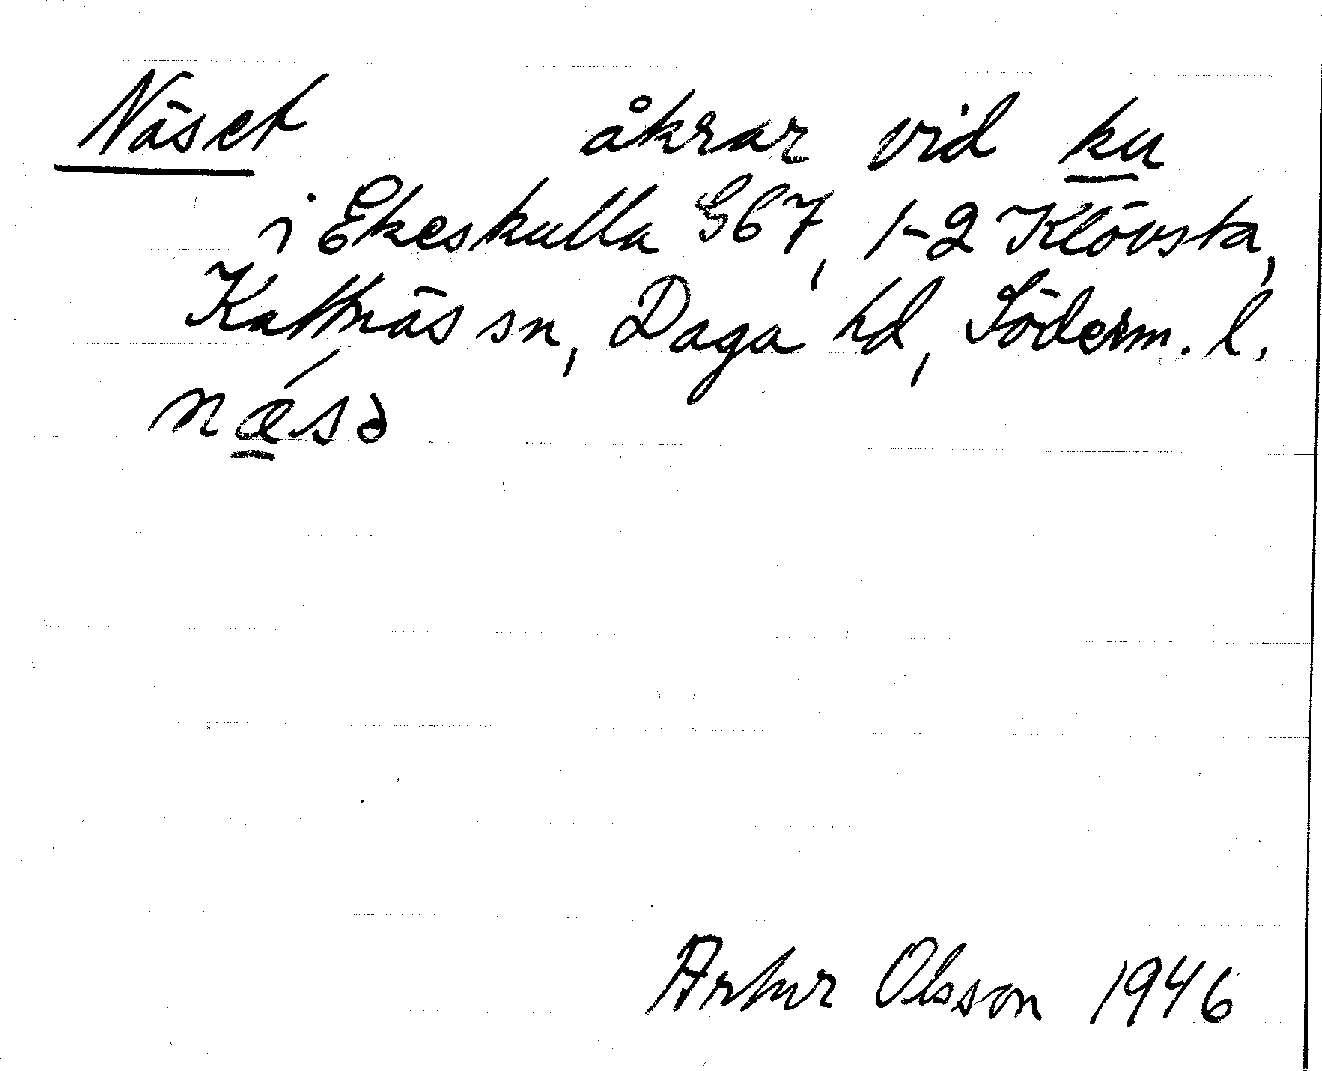 Näset åkrar vid ku
i Ekeskulla G67, 1-2 Klövsta,
Kattnäs sn, Daga hd, Söderm. l.
nǽ̱sə
Artur Olsson 1946